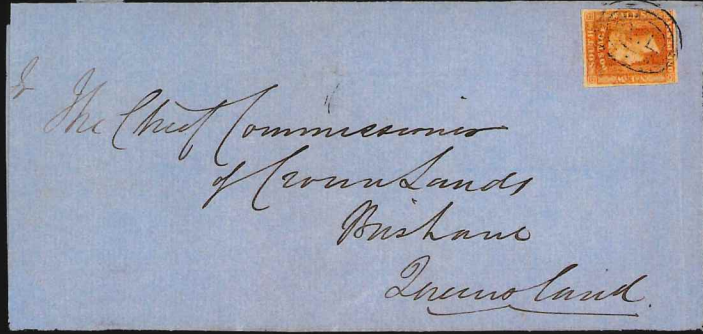 SOUTH
POSTAGE
The Chief Commissioner
of Crown Lands
Brisbane
Queensland.